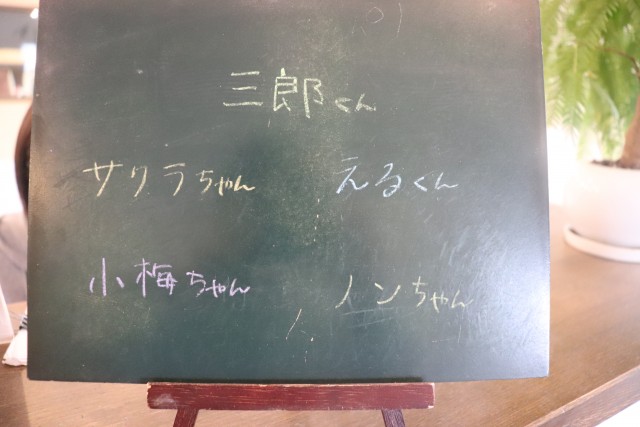 三郎くん
サクラちゃん
えるくん
小梅ちゃん
ノンちゃん